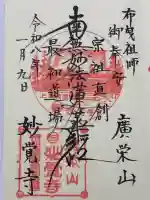 布曳祖師
御奉安
廣栄山
宗祖直創
南無妙法蓮華経
最初道場
令和八年
一月九日
妙覚寺